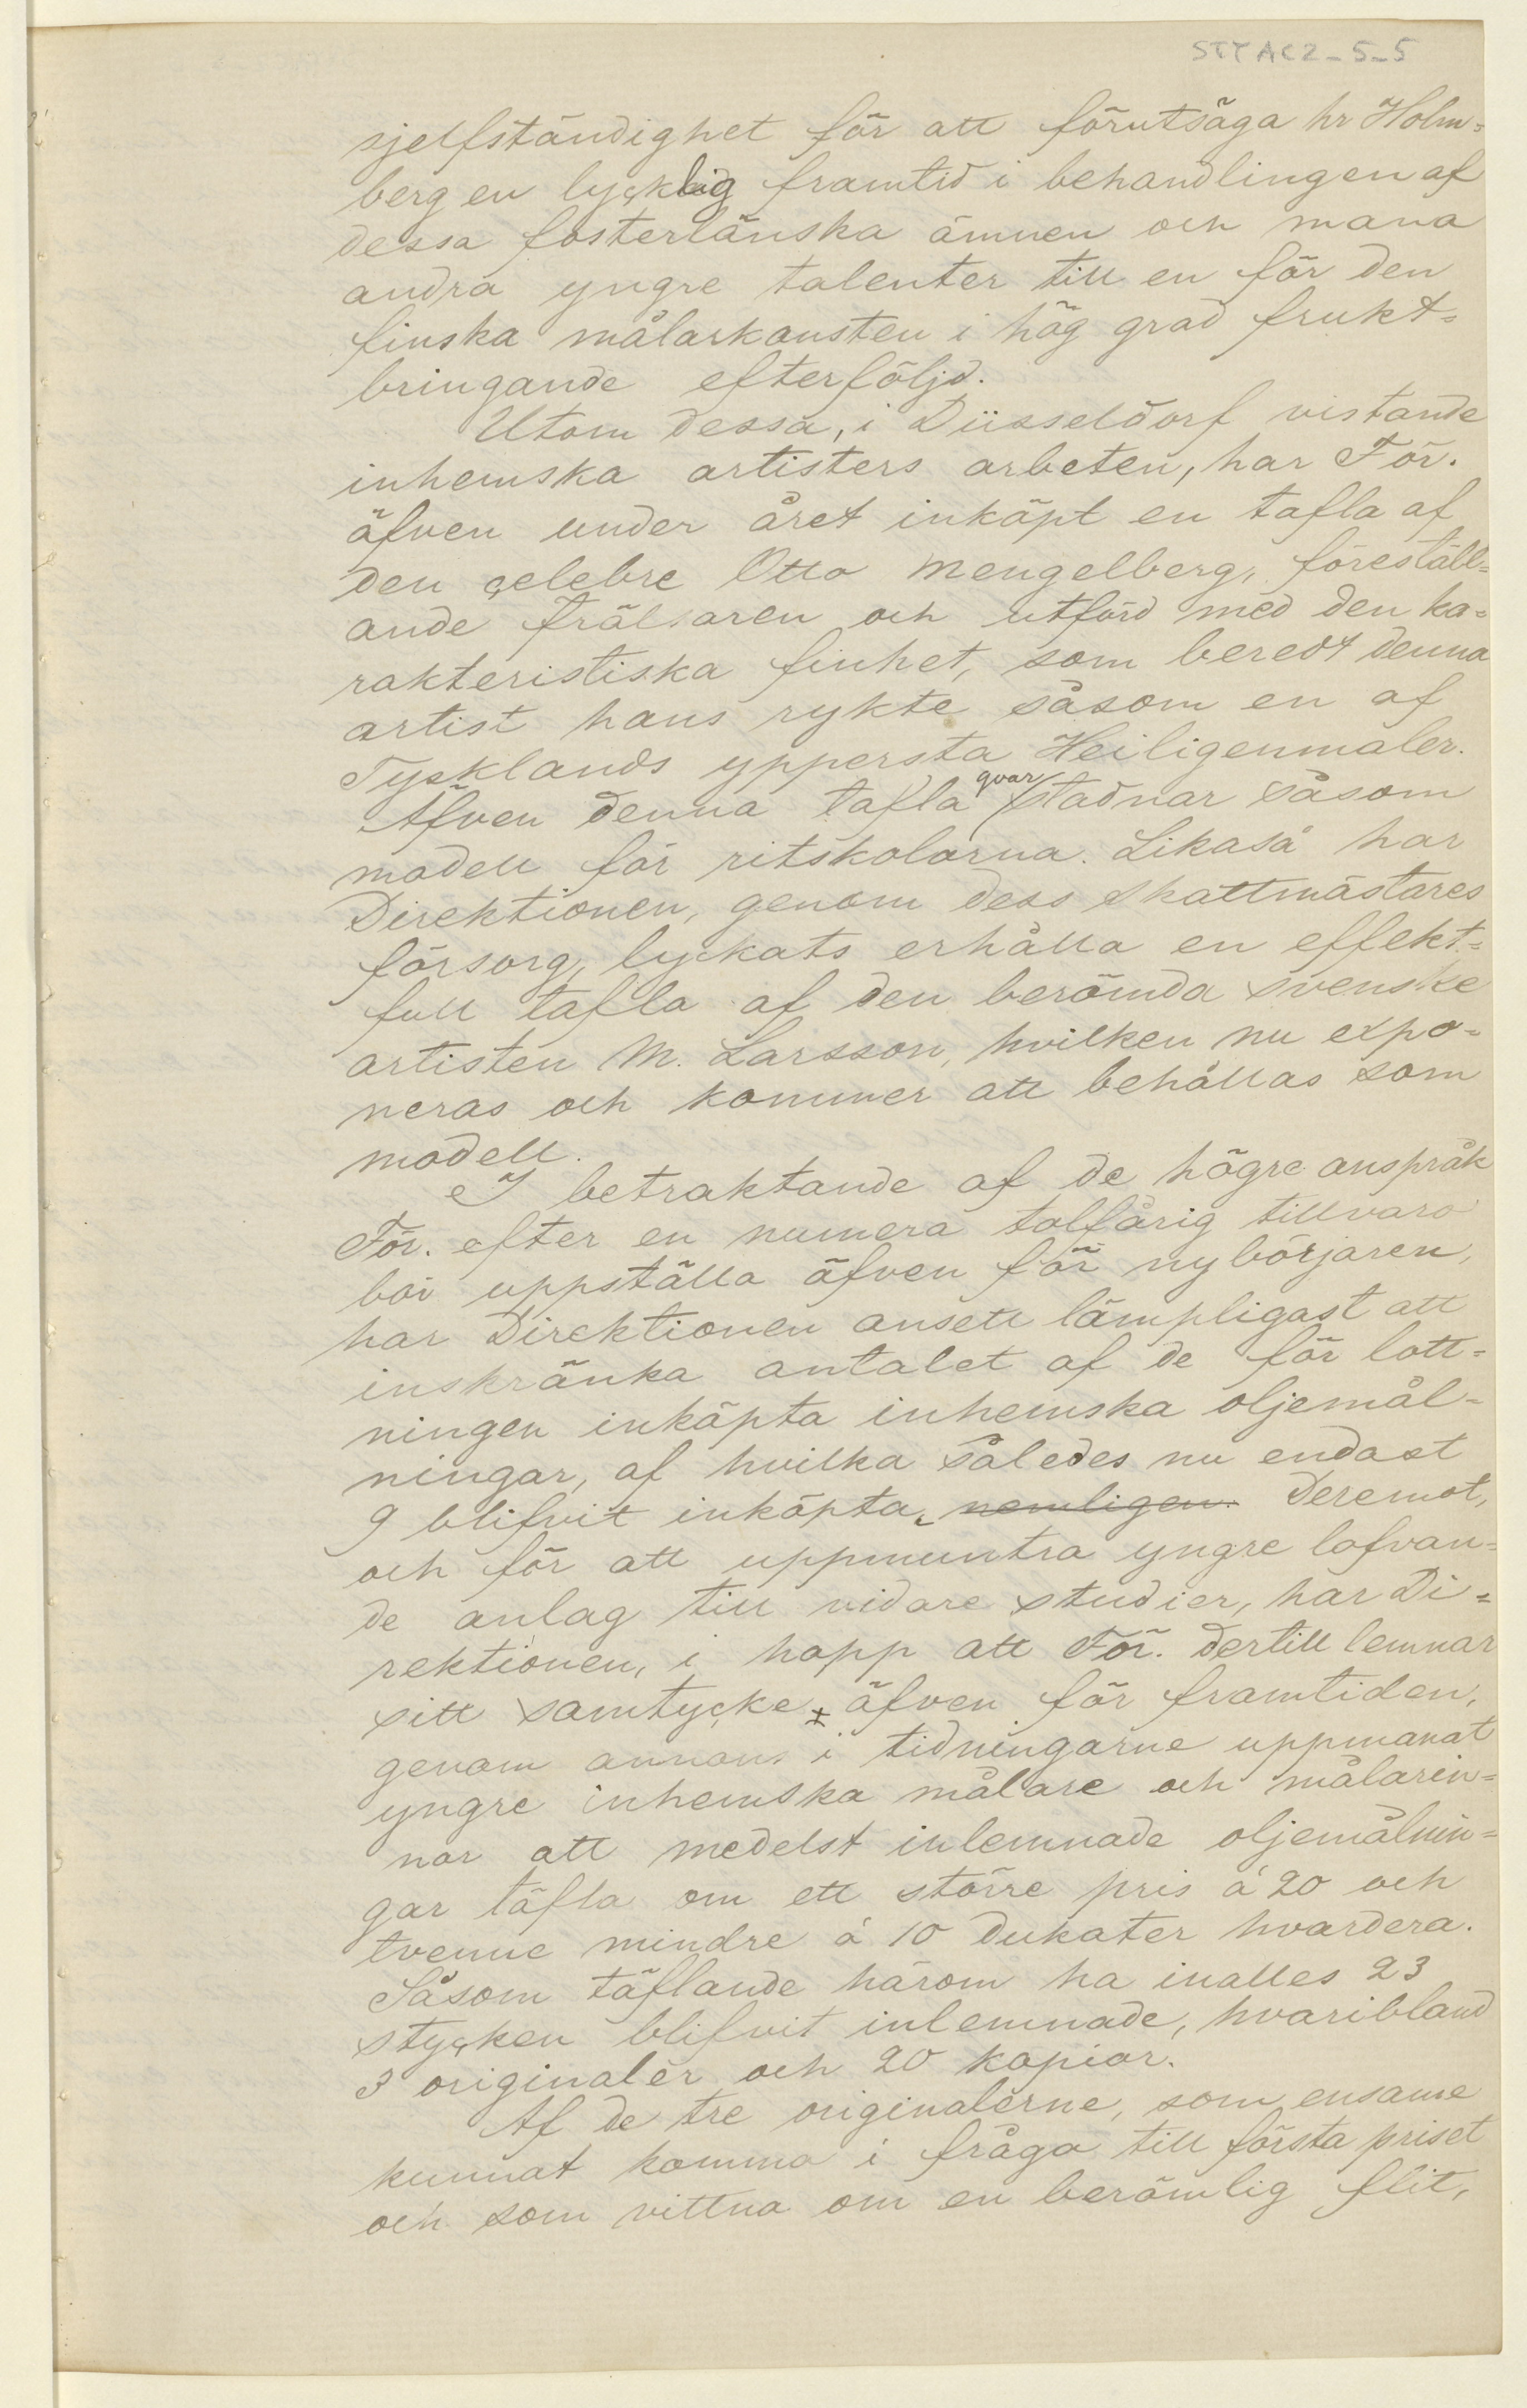 STYAC2-5-5
sjelfständighet för att förutsäga hr Holm=
berg en lycklig framtid i behandlingen af
dessa fosterlänska ämnen och mana
andra yngre talenter till en för den
finska målarkonsten i hög grad frukt=
bringande efterföljd.
Utom dessa, i Düsseldorf vistande
inhemska artisters arbeten, har För.
äfven under året inköpt en tafla af
den celebre Otto Mengelberg, föreställ=
ande frälsaren och utförd med den ka=
rakteristiska finhet, som beredt denna
artist hans rykte såsom en af
Tysklands yppersta Heiligenmaler.
Äfven denna tafla qvarstadnar såsom
modell för ritskolorna. Likaså har
Direktionen, genom dess skattmästares
försorg, lyckats erhålla en effekt=
full tafla af den berömda svenske
artisten M. Larsson, hvilken nu expo=
neras och kommer att behållas som
modell.
I betraktande af de högre anspråk
För. efter en numera tolfårig tillvaro
bör uppställa äfven för nybörjaren,
har Direktionen ansett lämpligast att
inskränka antalet af de för lott=
ningen inköpta inhemska oljemål=
ningar, af hvilka således nu endast
9 blifvit inköpta. nemligen. Deremot,
och för att uppmuntra yngre lofvan=
de anlag till vidare studier, har Di=
rektionen, i hopp att För. dertill lemnar
sitt samtycke äfven för framtiden,
genom annons i tidningarne uppmanat
yngre inhemska målare och målarin=
nor att medelst inlemnade oljemålnin=
gar täfla om ett större pris á 20 och
tvenne mindre á 10 dukater hvardera.
Såsom täflande härom ha inalles 23
stycken blifvit inlemnade, hvaribland
3 originaler och 20 kopior.
Af de tre originalerne, som ensame
kunnat komma i fråga till första priset
och som vittna om en berömlig flit,